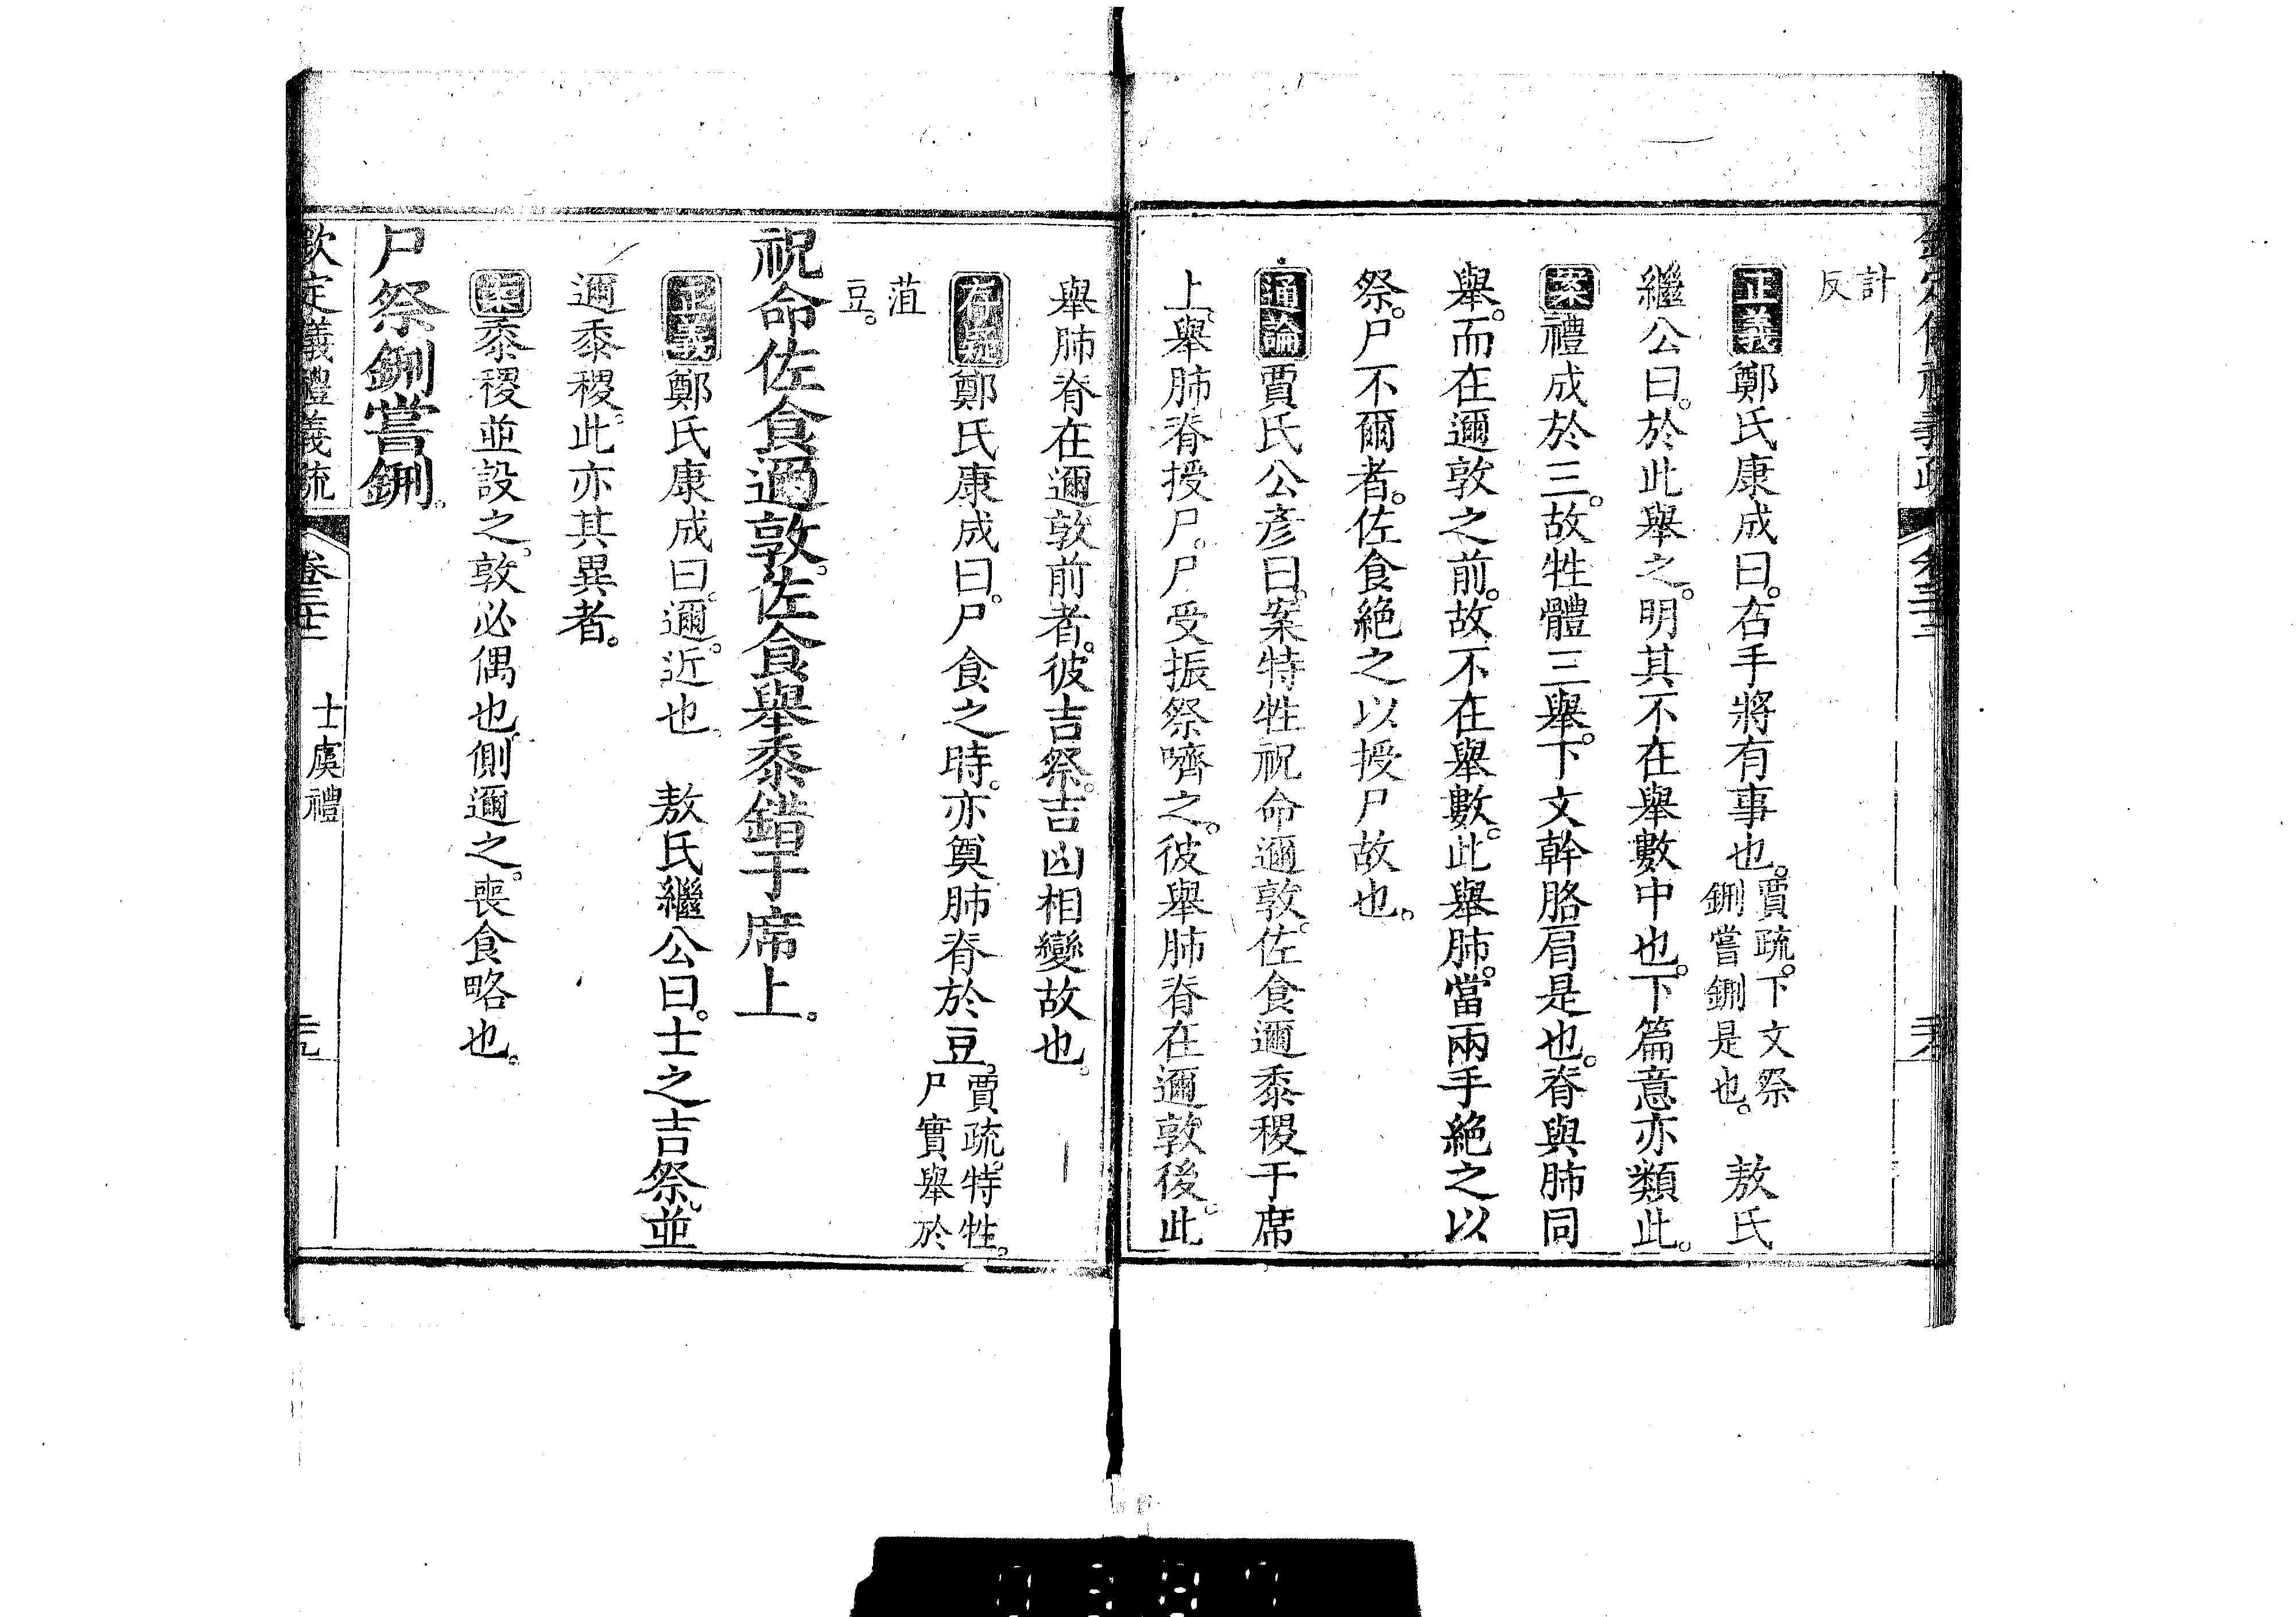 計
反
正義鄭氏康成曰。右手將有事也。賈疏。下文祭
鉶嘗鉶是也。　敖氏
繼公曰。於此舉之。明其不在舉數中也。下篇意亦類此。
案禮成於三。故牲體三舉。下文幹胳肩是也。脊與肺同
舉。而在邇敦之前。故不在舉數。此舉肺。當兩手絶之以
祭。尸不爾者。佐食絶之以授尸故也。
通論賈氏公彥曰。案特牲祝命邇敦。佐食邇黍稷于席
上。舉肺脊授尸。尸受振祭嚌之。彼舉肺脊在邇敦後。此
舉肺脊在邇敦前者。彼吉祭。吉凶相變故也。
存疑鄭氏康成曰。尸食之時。亦奠肺脊於豆。賈疏。特牲。
尸實舉於
菹
豆。
祝命佐食邇敦。佐食舉黍錯于席上。
正義鄭氏康成曰。邇。近也　敖氏繼公曰。士之吉祭。並
邇黍稷。此亦其異者。
案黍稷並設之。敦必偶也。側邇之。喪食略也。
尸祭鉶嘗鉶。
欽定儀禮義疏　卷三十三　士虞禮　三九